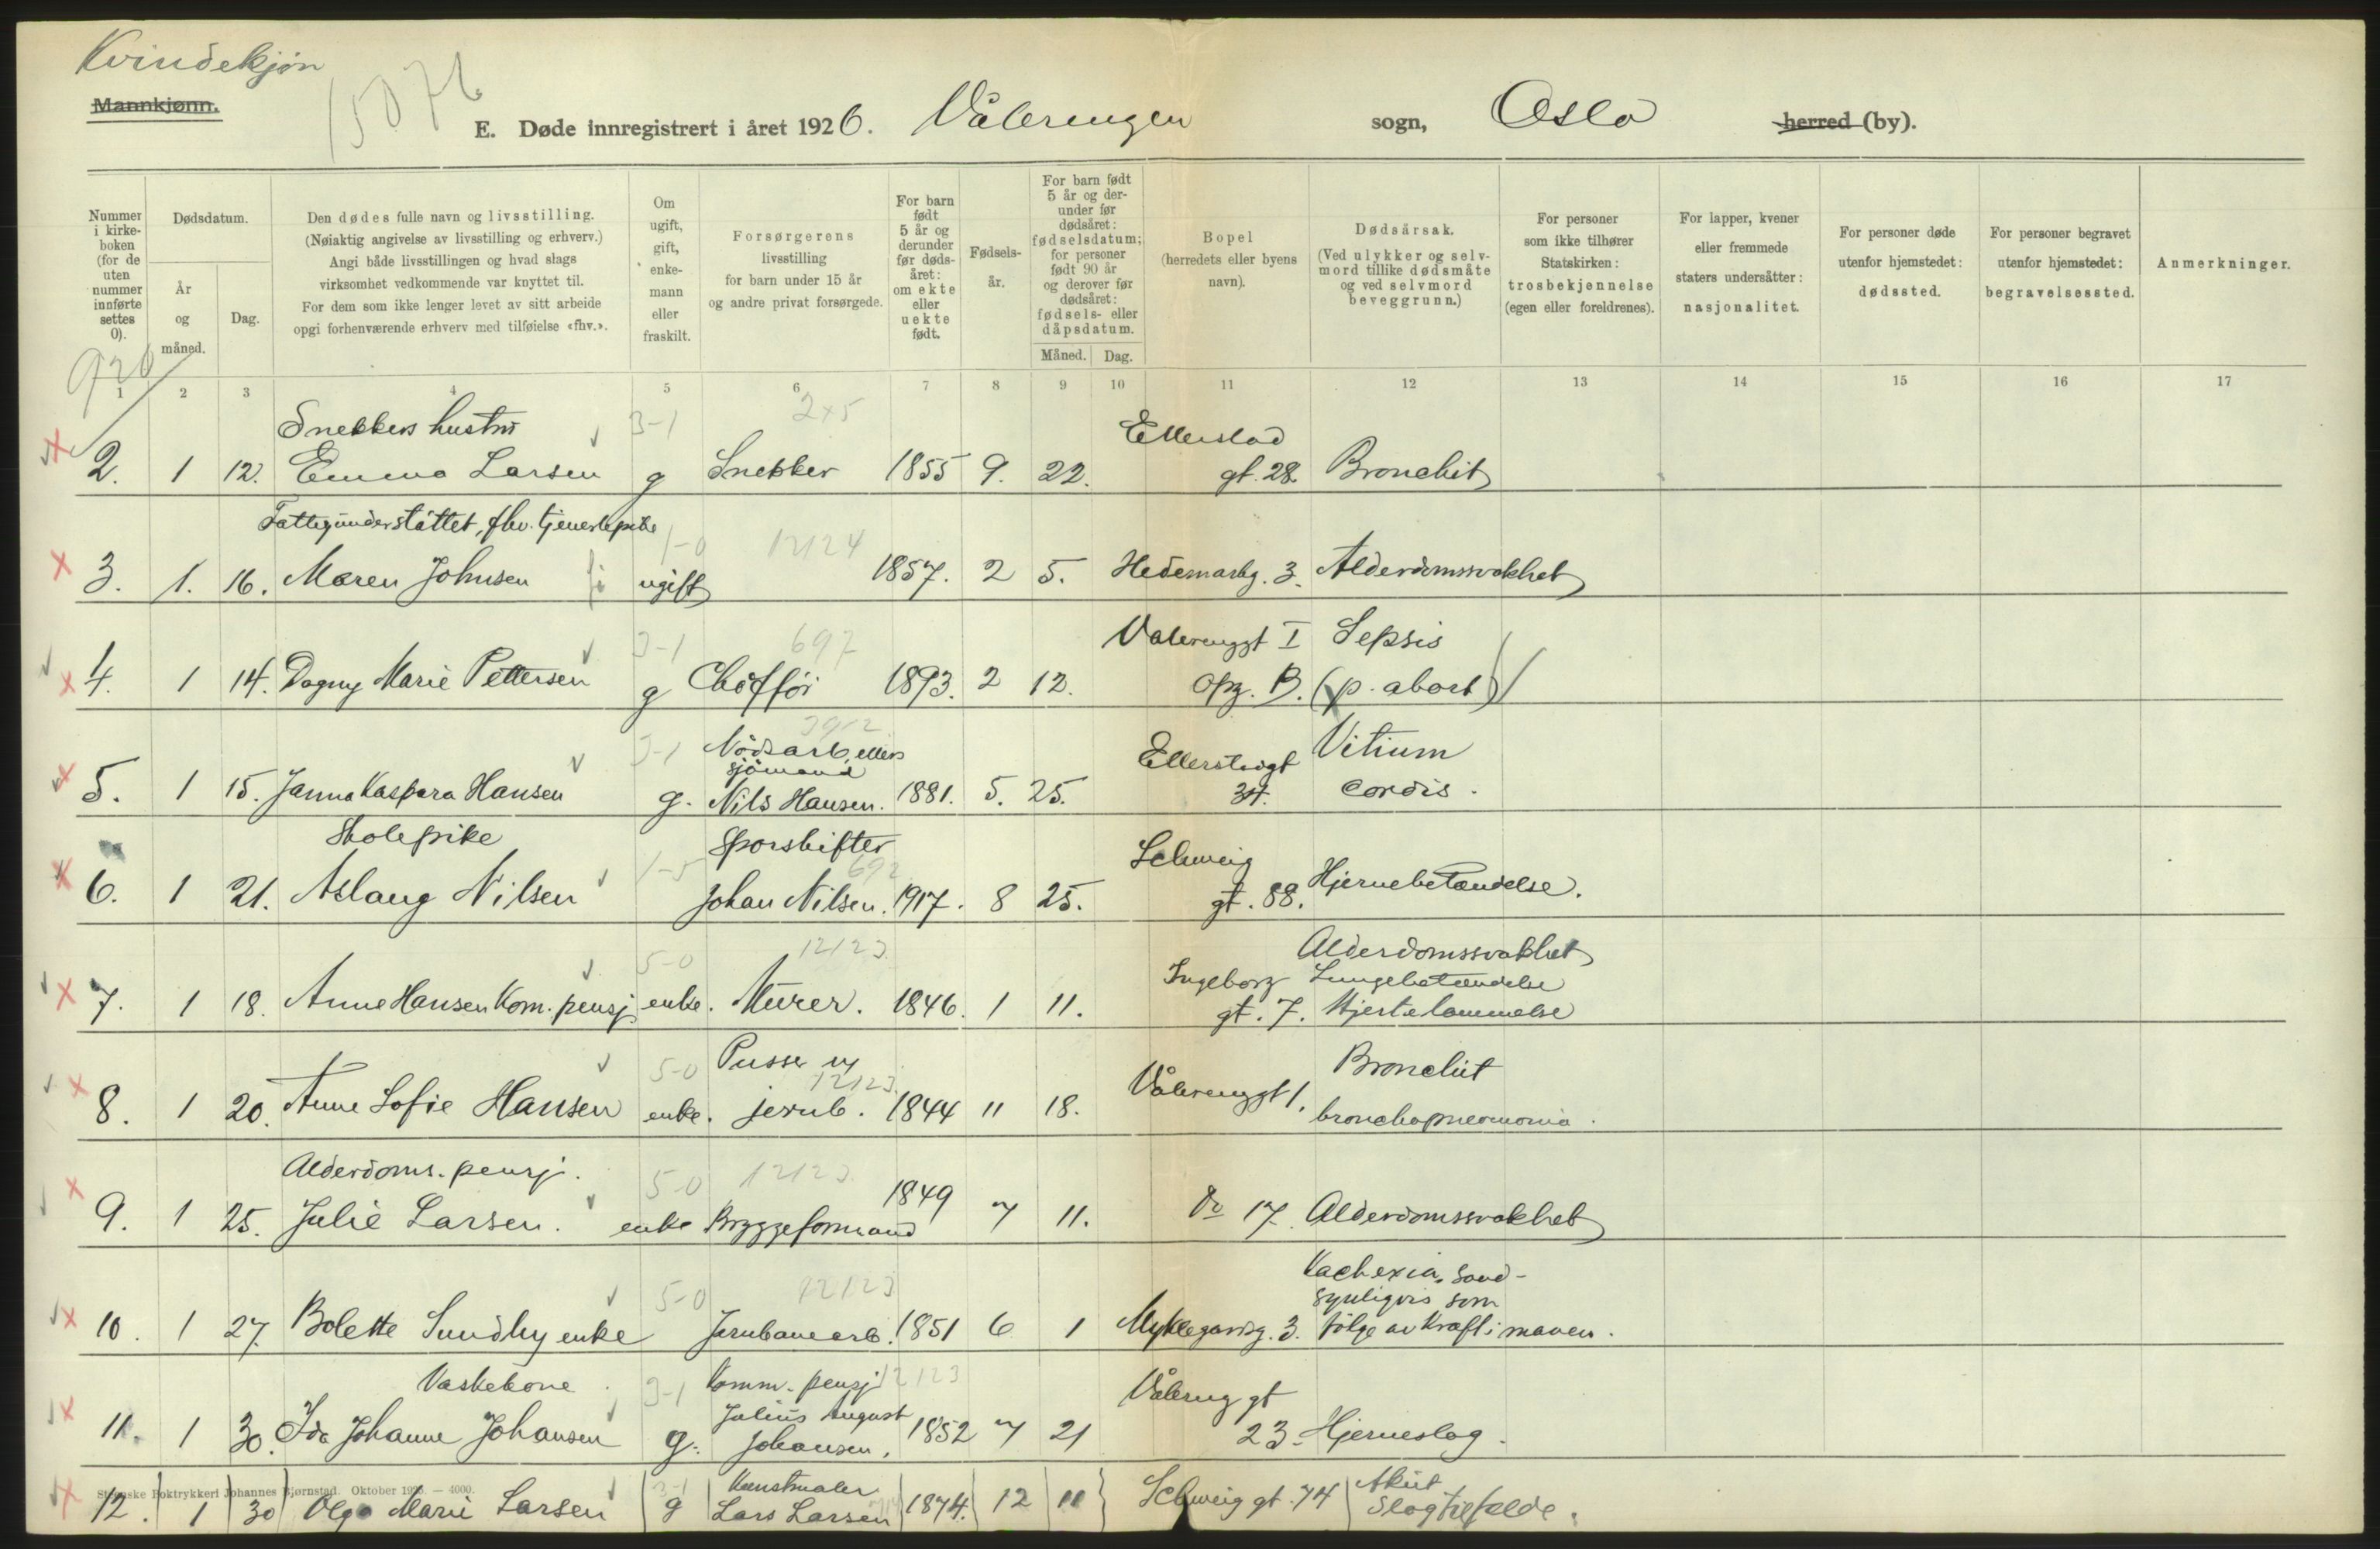 Kvindekjøn
Mannkjønn.
E. Døde innregistrert i året 1926. Vålerengen sogn, Oslo herred (by).
Nummer i kirke- boken (for de uten nummer innførte settes 0).
Dødsdatum.
År og måned.
Dag.
Den dødes fulle navn og livsstilling.
(Nøiaktig angivelse av livsstilling og erhverv.)
Angi både livsstillingen og hvad slags
virksomhet vedkommende var knyttet til.
For dem som ikke lenger levet av sitt arbeide
opgi forhenværende erhverv med tilføielse «fhv.».
Om ugift, gift, enke- mann eller fraskilt.
Forsørgerens livsstilling
for barn under 15 år
og andre privat forsørgede.
For barn født 5 år og derunder før døds- året: om ekte eller uekte født.
Fødsels- år.
For barn født 5 år og der- under før dødsåret: fødselsdatum; for personer født 90 år og derover før dødsåret: fødsels- eller dåpsdatum.
Måned. Dag.
Bopel
(herredets eller byens navn).
Dødsårsak.
(Ved ulykker og selv- mord tillike dødsmåte og ved selvmord beveggrunn.)
For personer som ikke tilhører Statskirken: trosbekjennelse (egen eller foreldrenes).
For lapper, kvener eller fremmede staters undersåtter: nasjonalitet.
For personer døde utenfor hjemstedet: dødssted.
For personer begravet utenfor hjemstedet: begravelsessted.
Anmerkninger.
926
1 2 3 4 5 6 7 8 9 10 11 12 13 14 15 16 17
Snekkers hustru 3-1 2x5 Ellerslad
2. 1 12. Emma Larsen g Snekker 1855 9. 22. gt. 28. Bronchit
Fattigunderstøttet, fhv. tjenestepike 1-0 12124
3. 1. 16. Maren Johnsen ugift 1857. 2 5. Hedemarkg. 3. Alderdomssvakhet
3-1 697 Vålerenggt I Sepsis
4. 1 14. Dagny Marie Pettersen g Choffør 1893. 2 12. opg. B. (p. abort)
3-1 Nødsarb, ellers sjømand Ellerslegt Vitium
5. 1 15. Janna Kaspara Hansen g. Nils Hansen. 1881. 5. 25. cordis.
Skolepike 1-5 Sporskifter 692 Schweig
6. 1 21. Aslaug Nilsen Johan Nilsen. 1917. 8 25. gt. 88. Hjernebetændelse.
5-0 12123 Alderdomssvakhet
Ingeborg Lungebetændelse
7. 1 18. Anne Hansen Kom. pensj. enke. Murer. 1846. 1 11. gt. 7. Hjertelammelse
5-0 Pusser v 12123 Bronchit
8. 1 20. Anne Sofie Hansen enke. jernb. 1844 11 18. Vålerenggt 1. bronchopneomonia.
Alderdoms. pensj. 5-0 12123
9. 1 25. Julie Larsen. enke Bryggeformand 1849 7 11. Do 17. Alderdomssvakhet
5-0 12123 Kachexia, sand-
synligvis som
10. 1 27 Bolette Sundby enke Jernbanearb. 1851 6 1 Myklegardsg. 3. følge av kræft i maven.
Vaskekone. 3-1 Komm. pensj 12123 Vålereng gt
11. 1 30. Ida Johanne Johansen g. Julius August Johansen. 1852 7 21 23. Hjerneslag.
Kunstmaler Akut
12. 1 30 Olga Marie Larsen g Lars Larsen 1874. 12 11 Schweig gt. 74 Slagtilfælde.
Boktrykkeri Johannes Bjørnstad. Oktober 1925. — 4000.